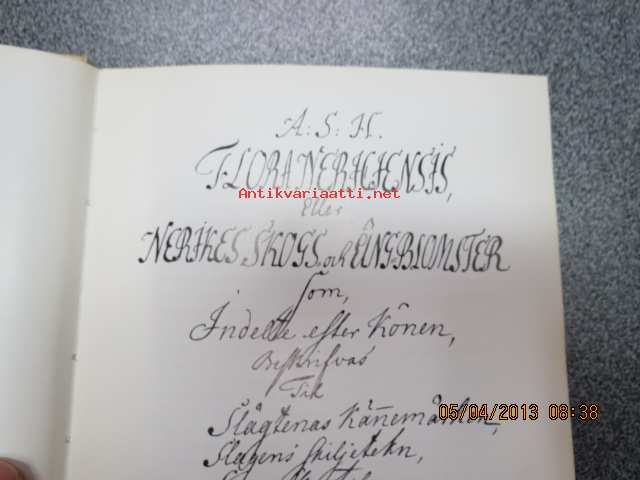 A: S: H.
FLORA NERICIENSIS,
Antikvariaatti.net
Eller
NERIKES, SKOGS och ÄNGBLOMSTER
Som,
Indelte efter Könen,
Beskrifvas
Til
Slägtenas Kän̄emärken,
05/04/2013 08:38
Slagens skiljetekn,